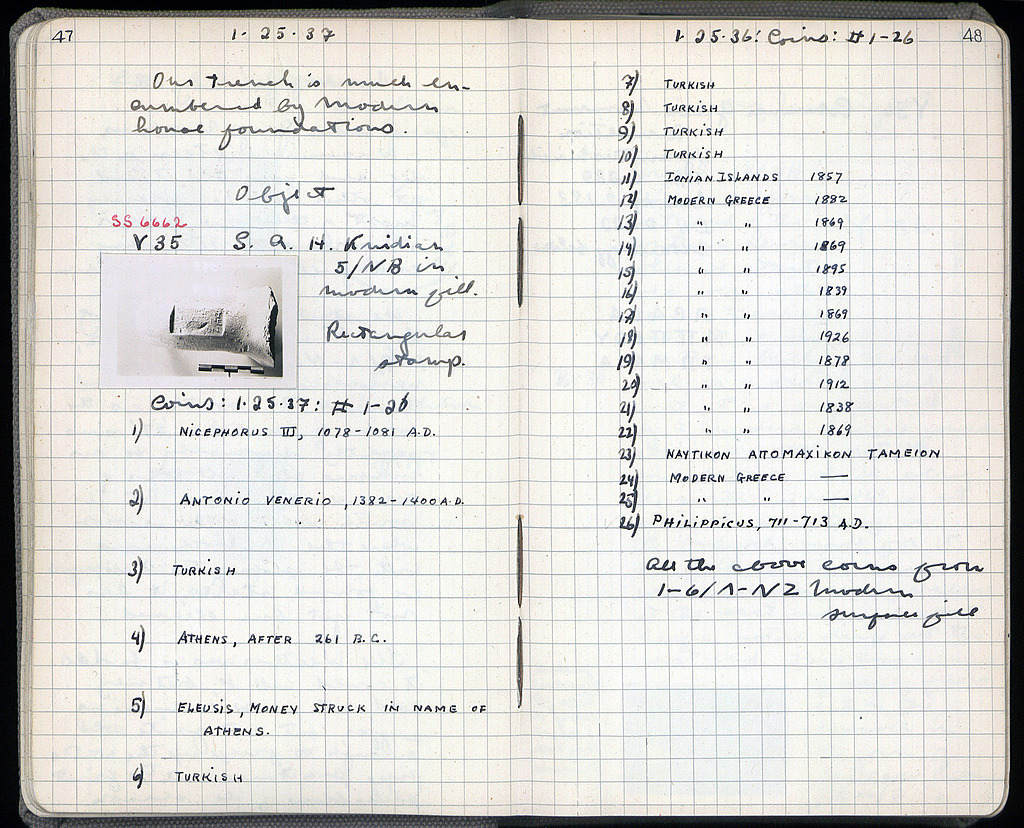 47
1·25·37
Our trench is much en-
cumbered by modern
house foundations.
Object
SS 6662
V 35 S. A. H. Knidian
5/ΝΒ in
modern fill.
Rectangular
stamp.
Coins: 1·25·37: # 1-26
1) NICEPHORUS III, 1078-1081 A.D.
2) ANTONIO VENERIO, 1382-1400 A.D.
3) TURKISH
4) ATHENS, AFTER 261 B.C.
5) ELEUSIS, MONEY STRUCK IN NAME OF
ATHENS.
6) TURKISH
1·25·36: Coins: # 1-26
48
7) TURKISH
8) TURKISH
9) TURKISH
10) TURKISH
11) IONIAN ISLANDS 1857
12) MODERN GREECE 1882
13) " " 1869
14) " " 1869
15) " " 1895
16) " " 1839
17) " " 1869
18) " " 1926
19) " " 1878
20) " " 1912
21) " " 1838
22) " " 1869
23) ΝΑΥΤΙΚΟΝ ΑΠΟΜΑΧΙΚΟΝ ΤΑΜΕΙΟΝ
24) MODERN GREECE —
25) " " —
26) PHILIPPICUS, 711-713 A.D.
All the above coins from
1-6/Λ-ΝΖ modern
surface fill